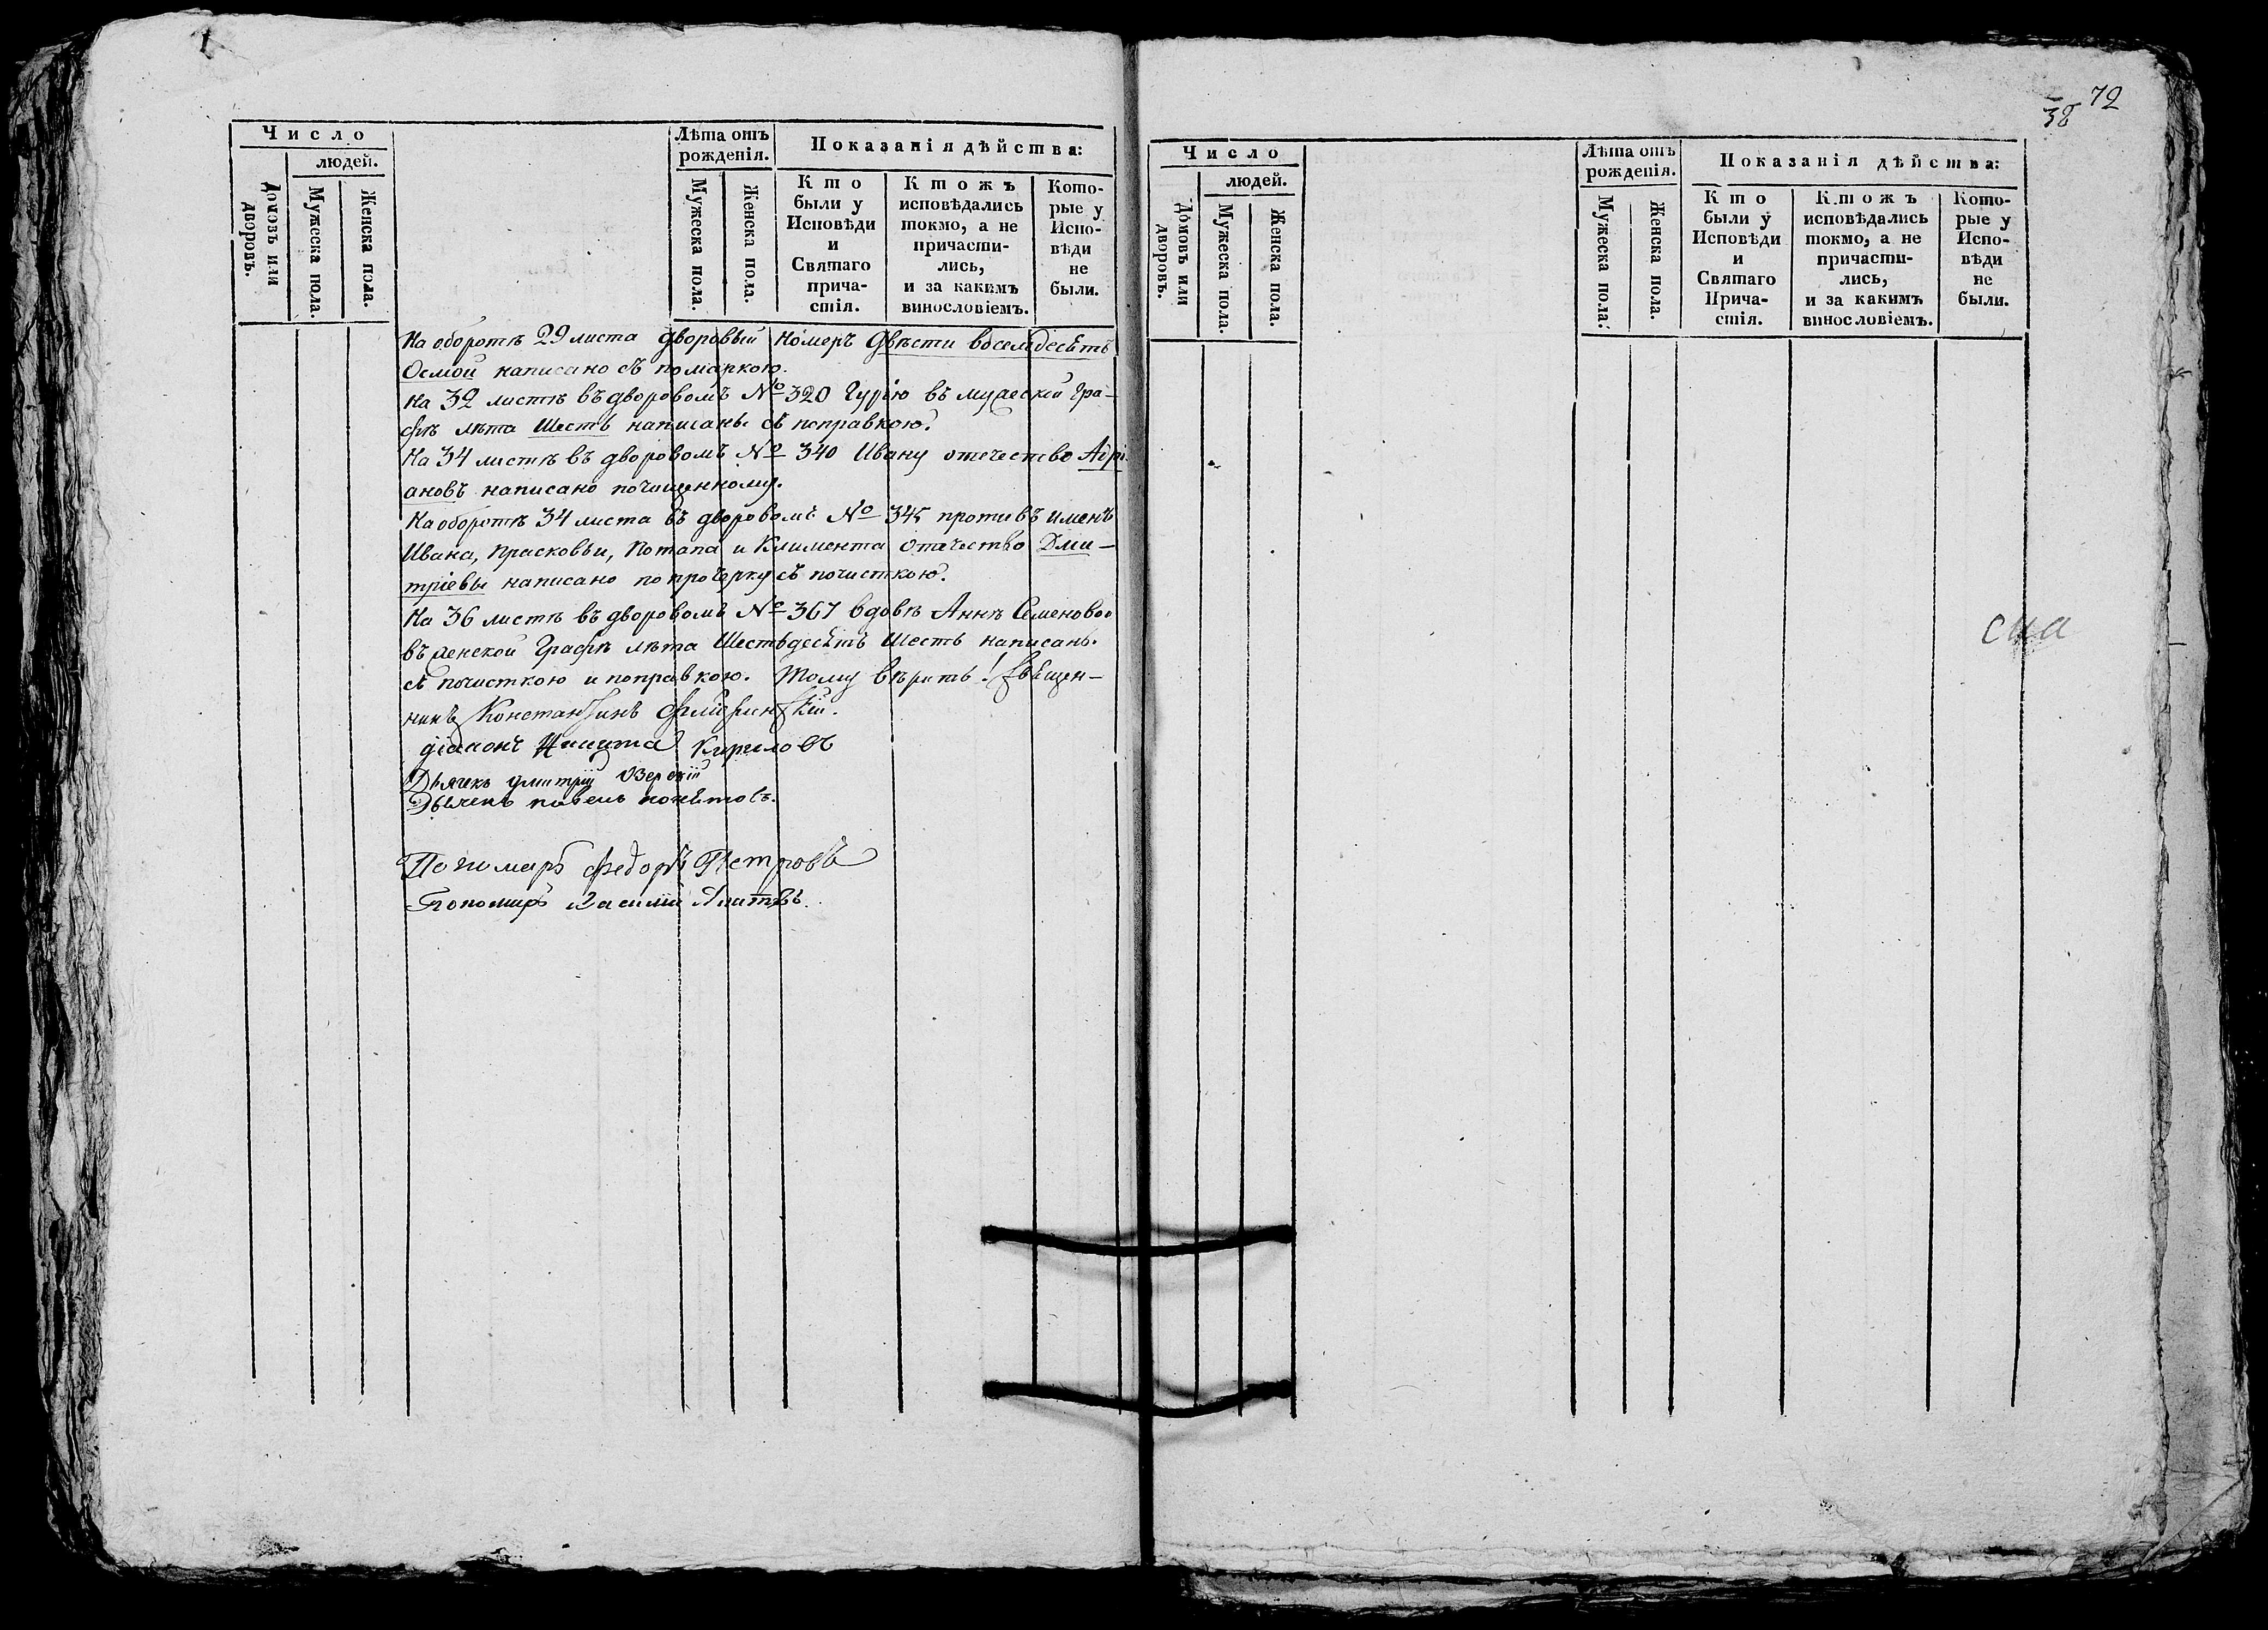 Число
людей.
Домовъ или дворовъ.
Мужеска пола.
Женска пола.
Лѣта отъ
рожденія.
Мужеска пола.
Женска пола.
Показанія дѣйства:
Кто
были у
Исповѣди
и
Святаго
прича-
стія.
Ктожъ
исповѣдались
токмо, а не
причасти-
лись,
и за какимъ
винословіемъ.
Кото-
рые у
Испо-
вѣди
не
были.
На оборотѣ 29 листа дворовый Номеръ Двѣсти восемдесятъ
Осмой написано съ помаркою.
На 32 листѣ въ дворовомъ № 320 Гурію въ мужеской Гра-
фѣ лѣта Шесть написаны съ поправкою.
На 34 листѣ въ дворовомъ № 340 Ивану отечество Адрі-
ановъ написано почищенному.
На оборотѣ 34 листа въ дворовомъ № 345 противъ именъ
Ивана, Прасковьи, Потапа и Климента отечество Дми-
тріевы написано по прочерку съ почисткою.
На 36 листѣ въ дворовомъ № 367 вдовѣ Аннѣ Семеновой
въ женской Графѣ лѣта Шестьдесятъ Шесть написаны
съ почисткою и поправкою. Тому вѣрить! Священ-
никъ Константинъ
діаконъ Никита Кириловъ
Дьячекъ Дмитрій Озерскій
Дьячекъ Павелъ
Пономарь Федоръ Петровъ
Пономарь Василій
72
38
Число
людей.
Домовъ или дворовъ.
Мужеска пола.
Женска пола.
Лѣта отъ
рожденія.
Мужеска пола.
Женска пола.
Показанія дѣйства:
Кто
были у
Исповѣди
и
Святаго
Прича-
стія.
Ктожъ
исповѣдались
токмо, а не
причасти-
лись,
и за какимъ
винословіемъ.
Кото-
рые у
Испо-
вѣди
не
были.